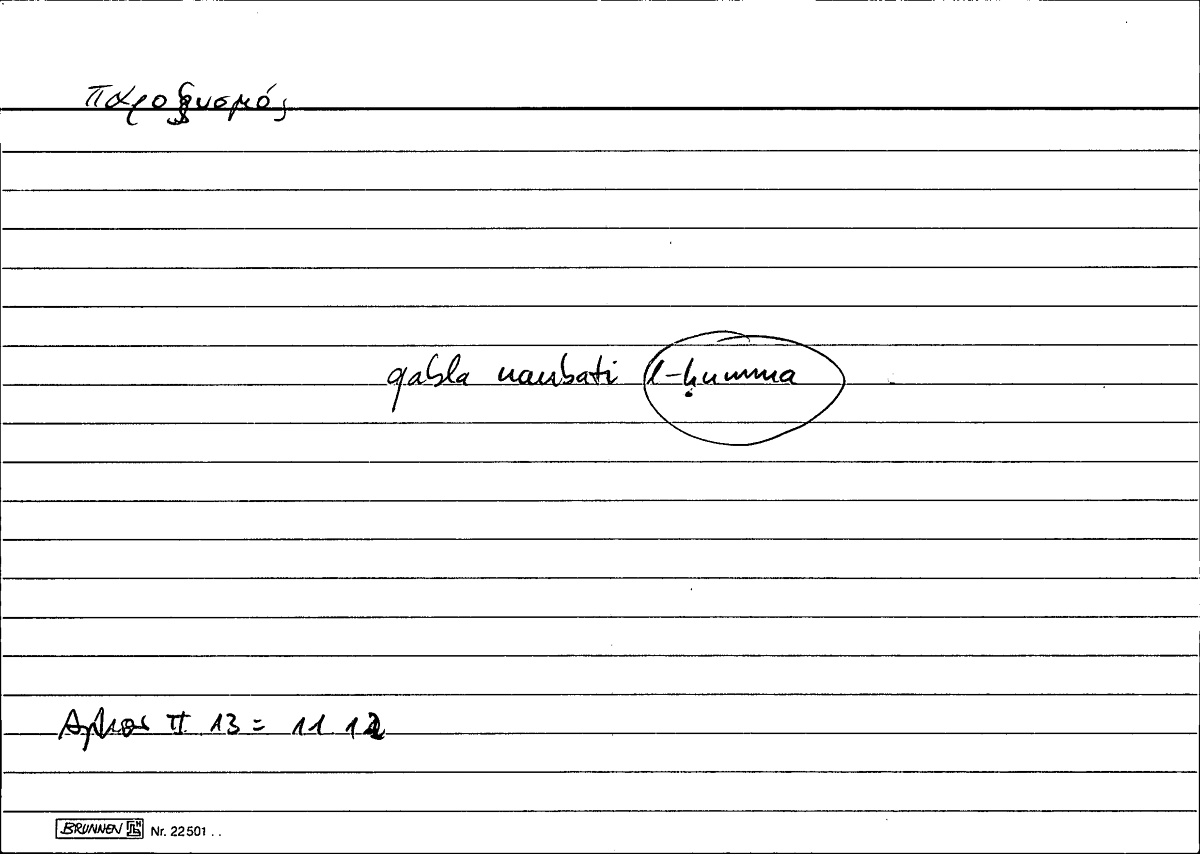 παροξυσμός
qabla naubati l-ḥumma
Aphor II 13 = 11 12
BRUNNEN Nr. 22501 . .